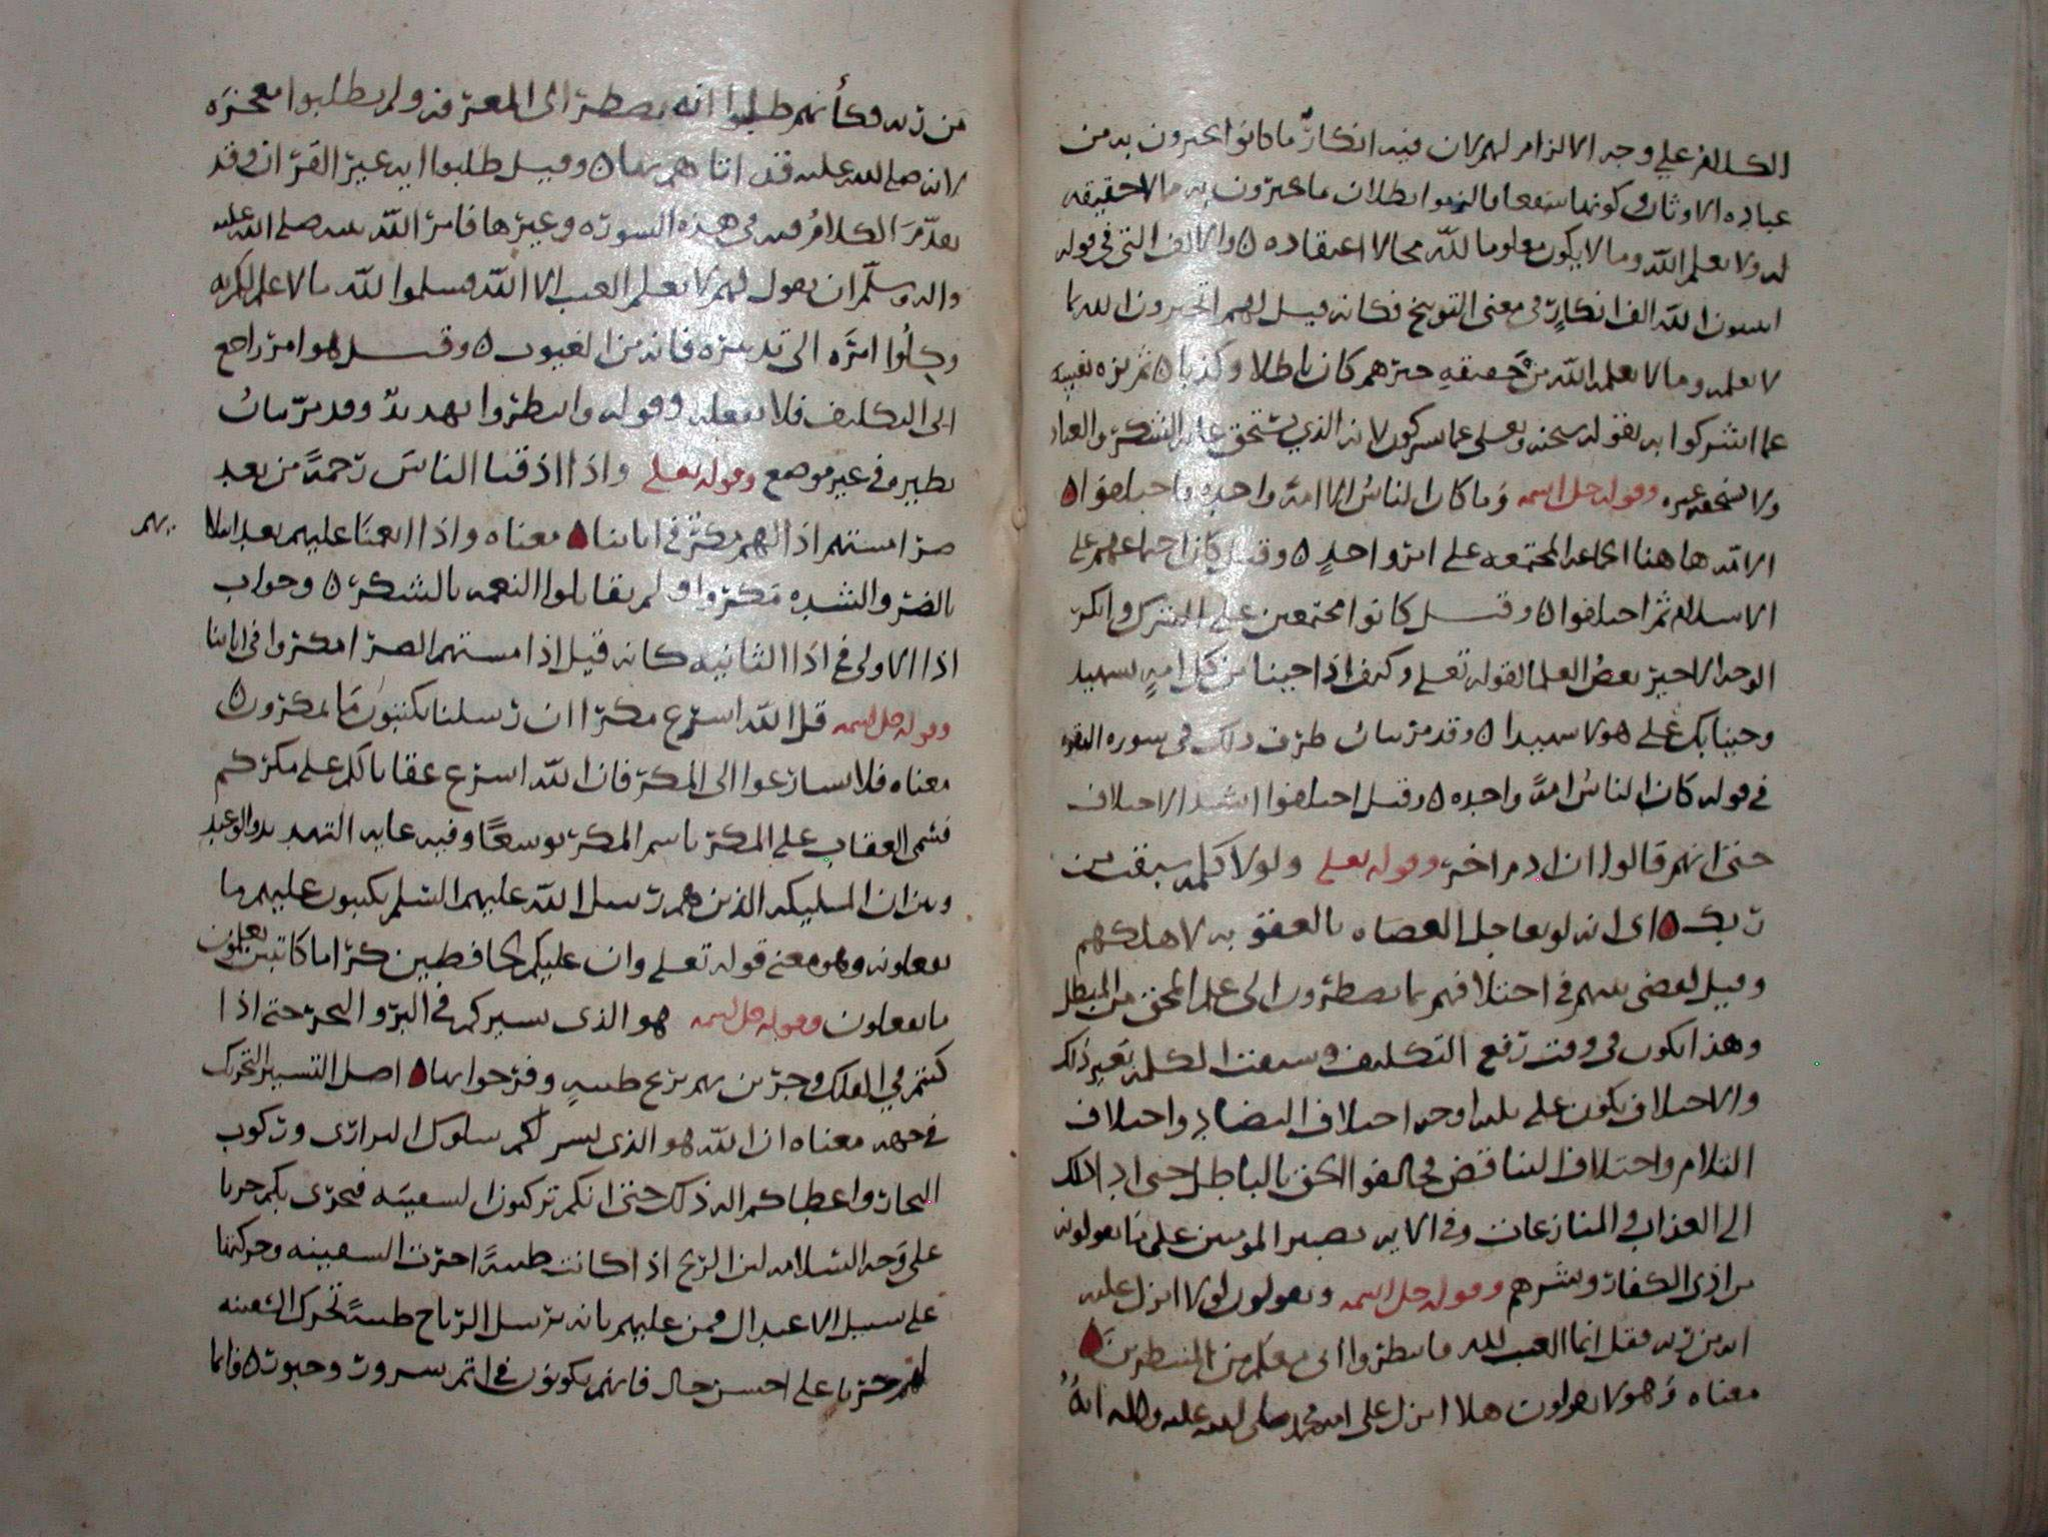 الكلام على وجه الالزام لهم لان فيه انكارٌ ما كانوا يخبرون به من
عباده الاوثان وكونها شفعا فالزموا بطلان ما يخبرون به مالا حقيقه
له ولا يعلم الله وما لا يكون معلوما لله محالا اعتقاده ۵ والالف التي في قوله
اتنبون الله الف انكارٍ في معنى التوبيخ فكانه قيل لهم اتخبرون الله بما
لا يعلمه وما لا يعلمه الله من حقيقه خبرهم كان باطلا وكذبا ۵ ثم نزه نفسه
عما اشركوا به بقوله سبحنه وتعلى عما يشركون لانه الذي يستحق غايه الشكر والعباد
ولا يستحقه غيره وقوله جل اسمه وما كان الناسُ الا امة واحده فاختلفوا ۵
الامه هاهنا الجماعه المجتمعه على امرٍ واحدٍ ۵ وقيل كان اجتماعهم على
الاسلام ثم اختلفوا ۵ وقيل كانوا مجتمعين على الشرك وانكر
الوجه الاخير بعضُ العلما لقوله تعلى وكيف اذا جينا من كل امهٍ بشهيد
وجينا بك على هولا شهيدا ۵ وقد مر بيان طرف ذلك في سوره البقره
في قوله كان الناسُ امةً واحده ۵ وقيل اختلفوا اشد الاختلاف
حتى انهم قالوا ان ادم اخر وقوله تعلى ولولا كلمه سبقت من
ربك ۵ اى انه لو يعاجل العصاه بالعقوبه لاهلكهم
وقيل لقضى بينهم في اختلافهم بما يضطرون الى علم المحق من المبطل
وهذا يكون في وقت رفع التكليف وسبقت الكلمه بغير ذلك
والاختلاف يكون على ثلثه اوجه اختلاف التضاد واختلاف
التلاوم واختلاف التناقض فخالفوا الحق بالباطل حتى اد ذلك
الى العذاب والمنازعات وفي الايه تصبير المومنين على ما يقولونه
من اذى الكفار وشرهم وقوله جل اسمه ويقولون لولا انزل عليه
ايه من ربه فقل انما الغيب لله فانتظروا انى معكم من المنتظرين ۵
معناه وهولا يقولون هلا انزل على محمد صلى الله عليه واله ايهٌ
من ربه فكأنهم طلبوا ايه يضطر الى المعرفه ولم يطلبوا معجزه
لانه صلى الله عليه قد اتاهم بها ۵ وقيل طلبوا ايه غير القران وقد
تقدّمَ الكلامُ فيه في هذه السوره وغيرها فامر الله نبيه صلى الله عليه
واله وسلم ان يقول لهم لا يعلم الغيب الا الله فسلموا لله ما لا علم لكم به
وكلُوا امرَه الى تدبيره فانه من الغيوب ۵ وقيل هو امر راجع
الى التكليف فلا يفعله وقوله وانتظروا تهديدٌ وقد مرّ بيانُ
نظيره في غير موضع وقوله تعلى واذا اذقنا الناسَ رحمةً من بعد
ضرا مستهم اذا لهم مكرٌ في اياتنا ۵ معناه واذا انعمنا عليهم بعد ابتلا
ـيهم
بالضر والشده مكروا ولم يقابلوا النعمه بالشكر ۵ وجواب
اذا الاولى في اذا الثانيه كانه قيل اذا مستهم الضرا مكروا في اياتنا
وقوله جل اسمه قل الله اسرع مكرا ان رسلنا يكتبون ما تمكرون ۵
معناه فلا تسارعوا الى المكر فان الله اسرع عقابا لكم على مكركم
فسُمى العقاب على المكر باسم المكر توسعًا وفيه غايه التهديد والوعيد
وبين ان المليكه الذين هم رسل الله عليهم السلم يكتبون عليهم ما
يفعلونه وهو معنى قوله تعلى وان عليكم لحافظين كراما كاتبين يعلمون
ما تفعلون وقوله جل اسمه هو الذى يسيركم في البر والبحر حتى اذا
كنتم في الفلك وجرين بهم بريح طيبهٍ وفرحوا بها ۵ اصل التسيير التحريك
في جهه معناه ان الله هو الذى يسر لكم سلوك البرارى وركوب
البحار واعطاكم اله ذلك حتى انكم تركبون السفينه فتجرى بكم جريا
على وجه السلامه لان الريح اذا كانت طيبةً اجرت السفينه وحركتها
على سبيل الاعتدال فمن عليهم بانه يرسل الرياح طيبةً تحرك السفينه
لهم جريا على احسن حال فانهم يكونون في اتم سرور وحبور ۵ فانما